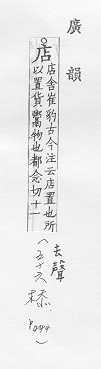 廣韻
店店舍崔豹古今注云店置也所
以置貨鬻物也都念切十一
（去聲
五十六㮇
P.444）